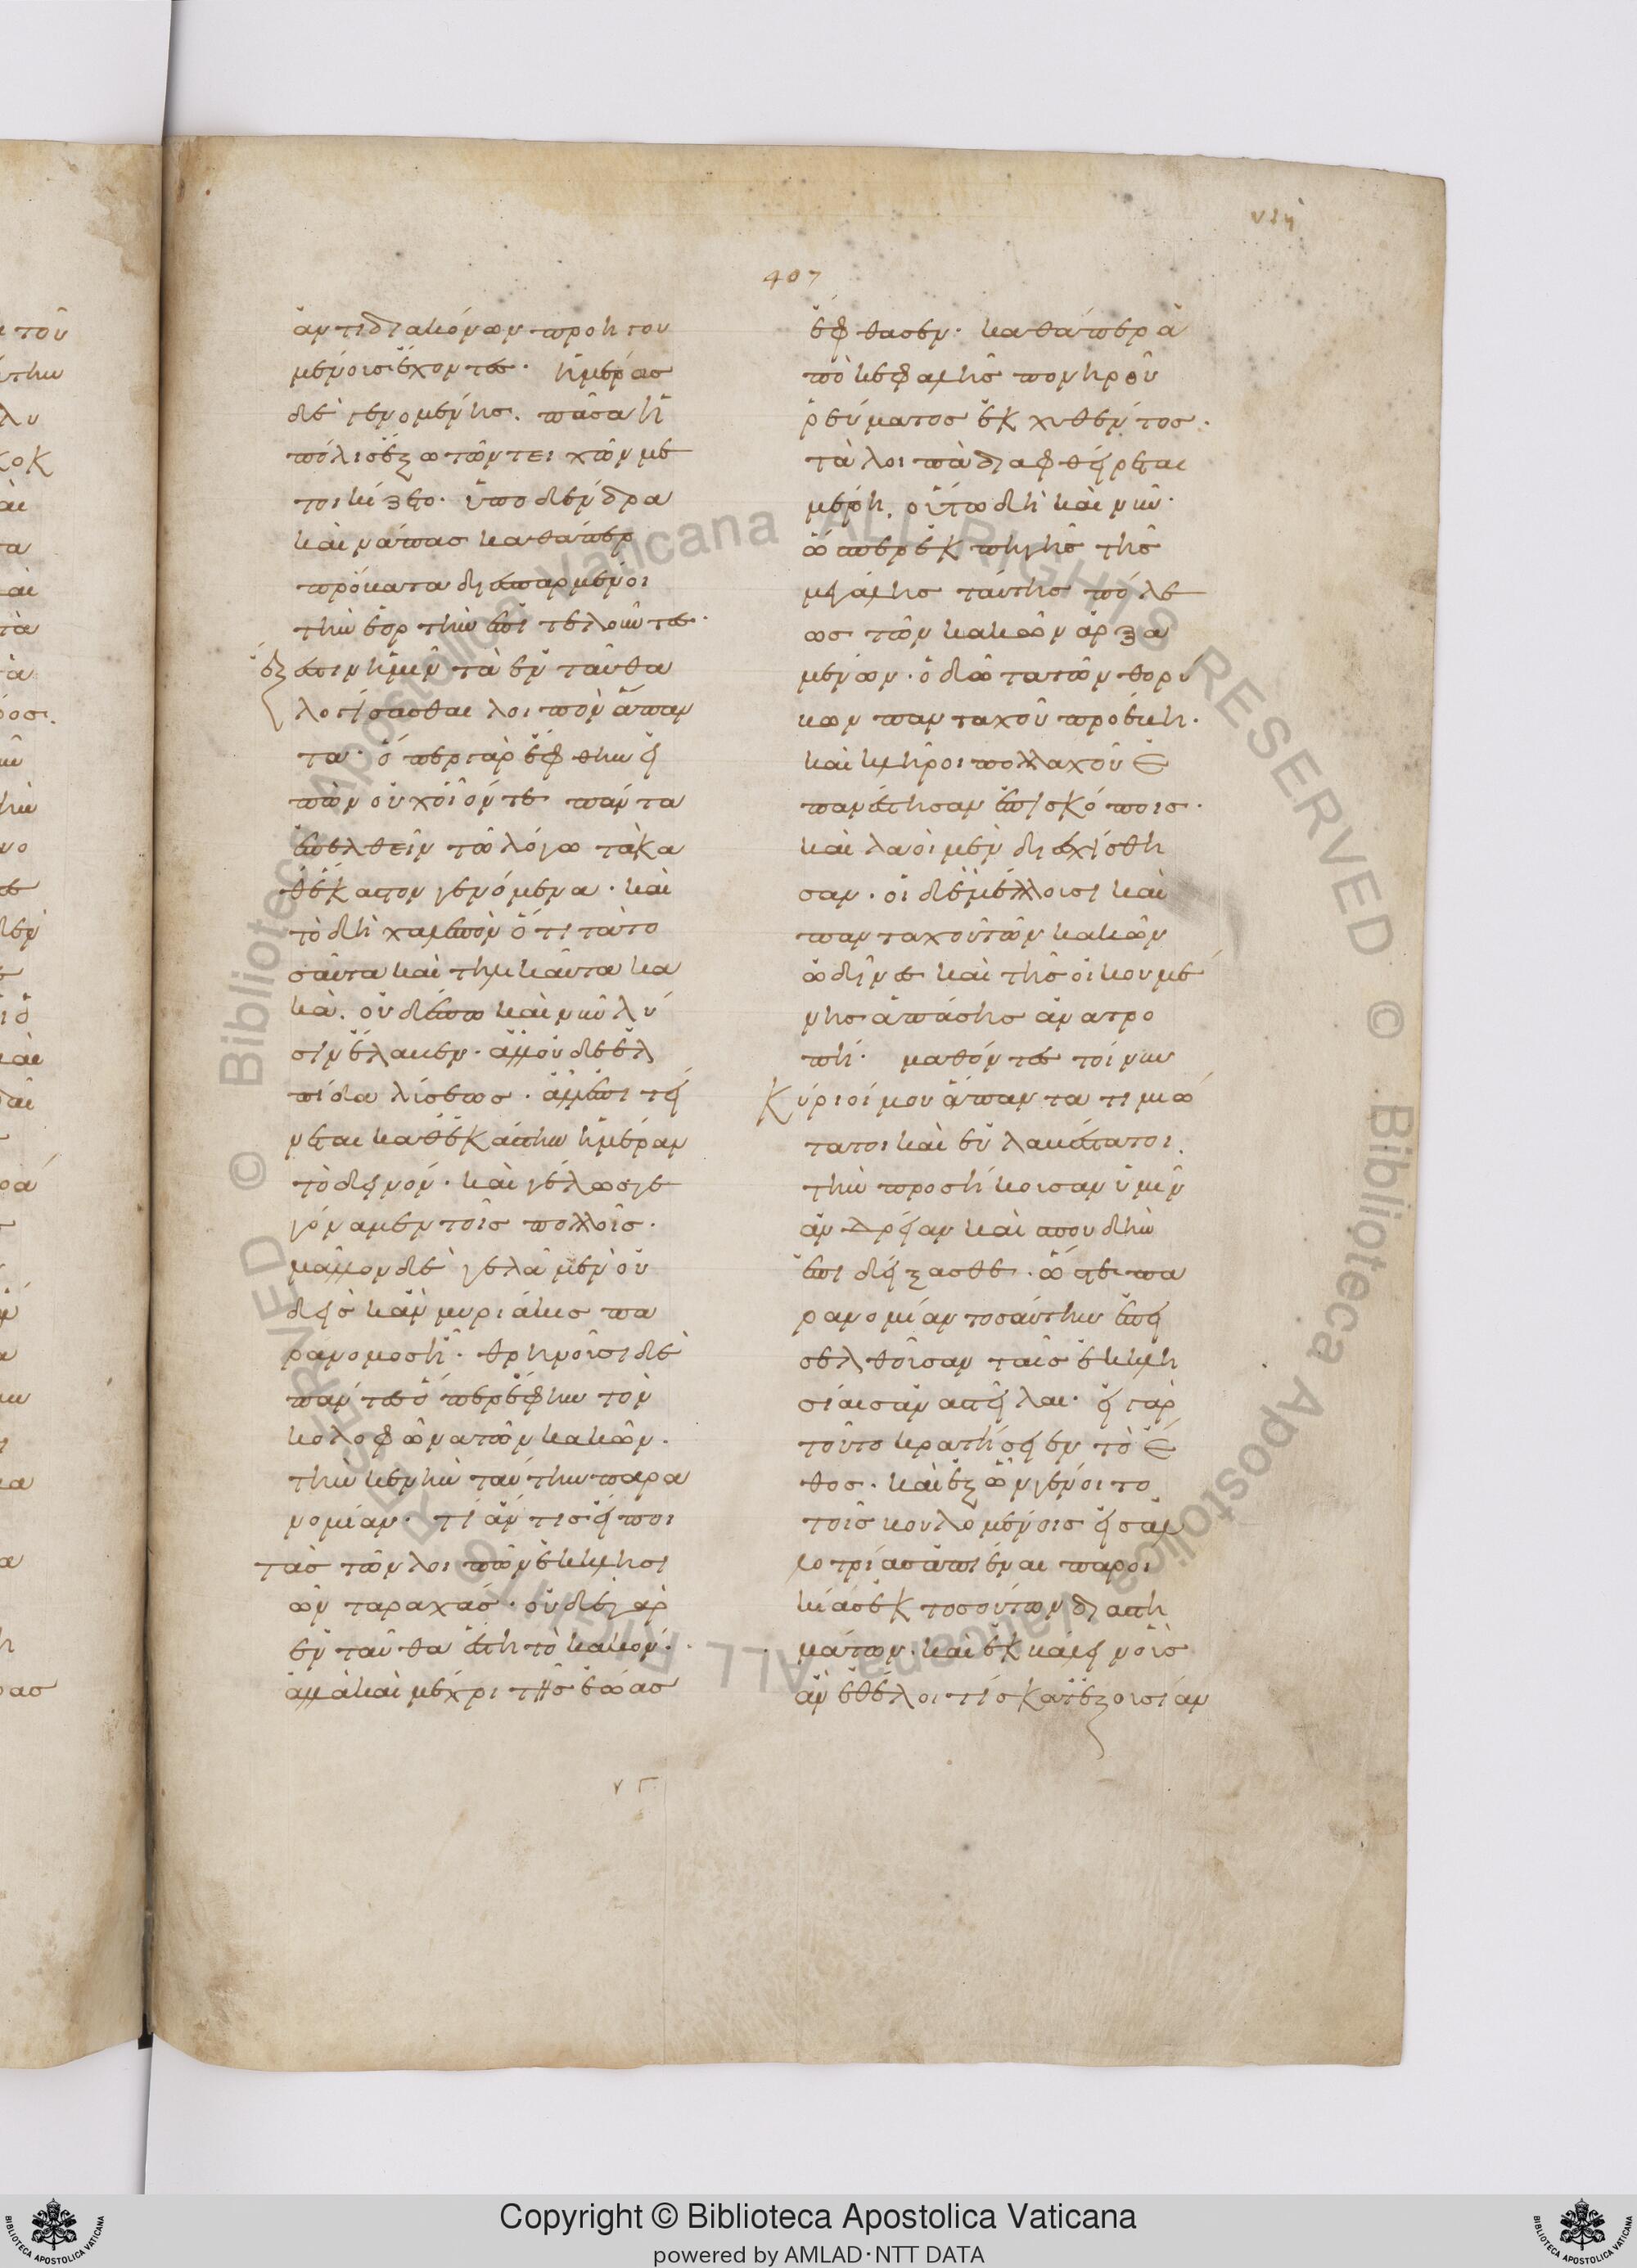 407
ἀντὶ διακόνων προηγου
μένους ἔχοντες. ἡμέρας
δὲ γενομένης. πᾶσα ἡ
πόλις ἔξω τῶν τειχῶν με
τωικίζετο. ὑπὸ δένδρα
καὶ νάπας καθάπερ
πρόβατα διεσπαρμένοι
τὴν ἑορτὴν ἐπιτελοῦντες.
ἔξεστιν ὑμῖν τὰ ἐνταῦθα
λογίσασθαι λοιπὸν ἅπαν
τα. ὅπερ γὰρ ἔφθην εἰ
πὼν οὐχ οἷόν τε πάντα
ἐπελθεῖν τῶ λόγω τὰ κα
θέκαστον γενόμενα. καὶ
τὸ δὴ χαλεπὸν ὅτι τὰ το
σαῦτα καὶ τηλικαῦτα κα
κὰ. οὐδέπω καὶ νῦν λύ
σιν ἔλαβεν. ἀλλ' οὐδὲ ἐλ
πίδα λύσεως. ἀλλ' ἐπιτεί
νεται καθεκάστην ἡμέραν
τὸ δεινόν. καὶ γέλως γε
γόναμεν τοῖς πολλοῖς.
μᾶλλον δὲ γελᾶ μὲν οὐ
δεὶς κἂν μυριάκις πα
ράνομος ἦ. θρηνοῦσι δὲ
πάντες ὅπερ ἔφην τὸν
κολοφῶνα τῶν κακῶν.
τὴν καινὴν ταύτην παρα
νομίαν. τί ἄν τις εἴποι
τὰς τῶν λοιπῶν ἐκκλησι
ῶν ταραχάς. οὐδὲ γὰρ
ἐνταῦθα ἔστη τὸ κακόν.
ἀλλὰ καὶ μέχρι τῆς ἑώας
ἔφθασεν. καθάπερ ἀ
πὸ κεφαλῆς πονηροῦ
ῥεύματος ἐκχυθέντος.
τὰ λοιπὰ διαφθείρεται
μέρη. οὕτω δὴ καὶ νῦν.
ὥσπερ ἐκ πηγῆς τῆς
μεγάλης ταύτης πόλε
ως τῶν κακῶν ἀρξα
μένων. ὁδῶ τὰ τῶν θορύ
βων πανταχοῦ προέβη.
καὶ κλῆροι πολλαχοῦ ἐ
πανέστησαν ἐπισκόποις.
καὶ λαοὶ μὲν διεσχίσθη
σαν. οἱ δὲ μέλλουσι καὶ
πανταχοῦ τῶν κακῶν
ὠδῖνες καὶ τῆς οἰκουμέ
νης ἁπάσης ἀνατρο
πή. μαθόντες τοίνυν
κύριοί μου ἅπαντα τιμιώ
τατοι καὶ εὐλαβέστατοι.
τὴν προσήκουσαν ὑμῖν
ἀνδρείαν καὶ σπουδὴν
ἐπιδείξασθε. ὥστε πα
ρανομίαν τοσαύτην ἐπει
σελθοῦσαν ταῖς ἐκκλη
σίαις ἀναστεῖλαι. εἰ γὰρ
τοῦτο κρατήσειεν τὸ ἔ
θος. καὶ ἐξὸν γένοιτο
τοῖς βουλομένοις εἰς ἀλ
λοτρίας ἀπιέναι παροι
κίας ἐκ τοσούτων διαστη
μάτων. καὶ ἐκβάλλειν οὓς
ἂν ἐθέλοι τίς κατεξουσίαν